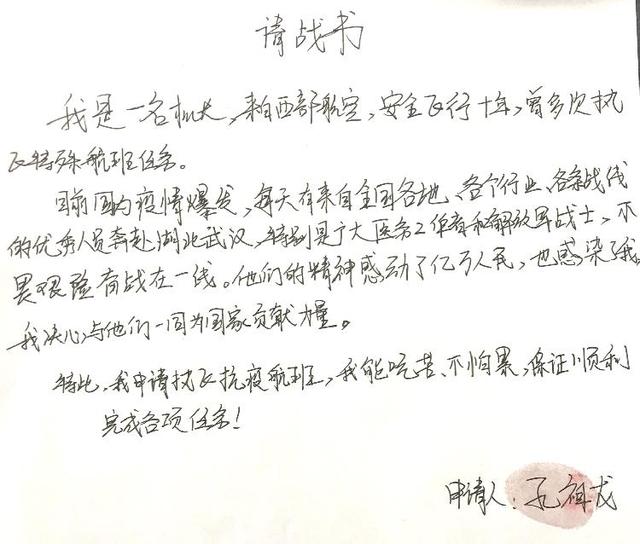 请战书
我是一名机长，来自西部航空，安全飞行十年，曾多次执
飞特殊航班任务。
目前国内疫情爆发，每天有来自全国各地、各个行业、各条战线
的优秀人员奔赴湖北武汉，特别是广大医务工作者和解放军战士，不
畏艰险奋战在一线。他们的精神感动了亿万人民，也感染了我。
我决心与他们一同为国家贡献力量。
特此，我申请执飞抗疫航班，我能吃苦、不怕累，保证顺利
完成各项任务！
申请人：孔祥龙